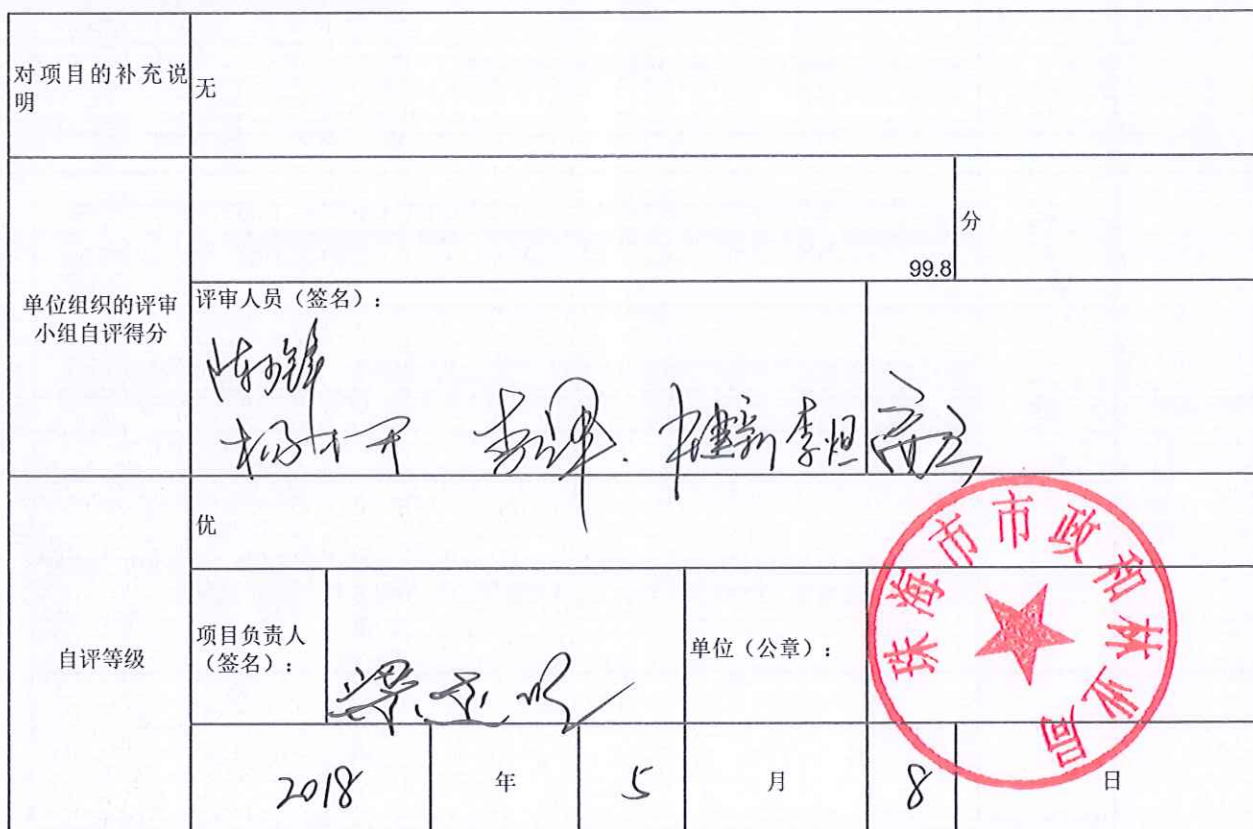 对项目的补充说明
无
单位组织的评审小组自评得分
99.8
分
评审人员（签名）：
李煜
自评等级
优
项目负责人（签名）：
单位（公章）：
珠海市市政和林业局
2018 年 5 月 8 日